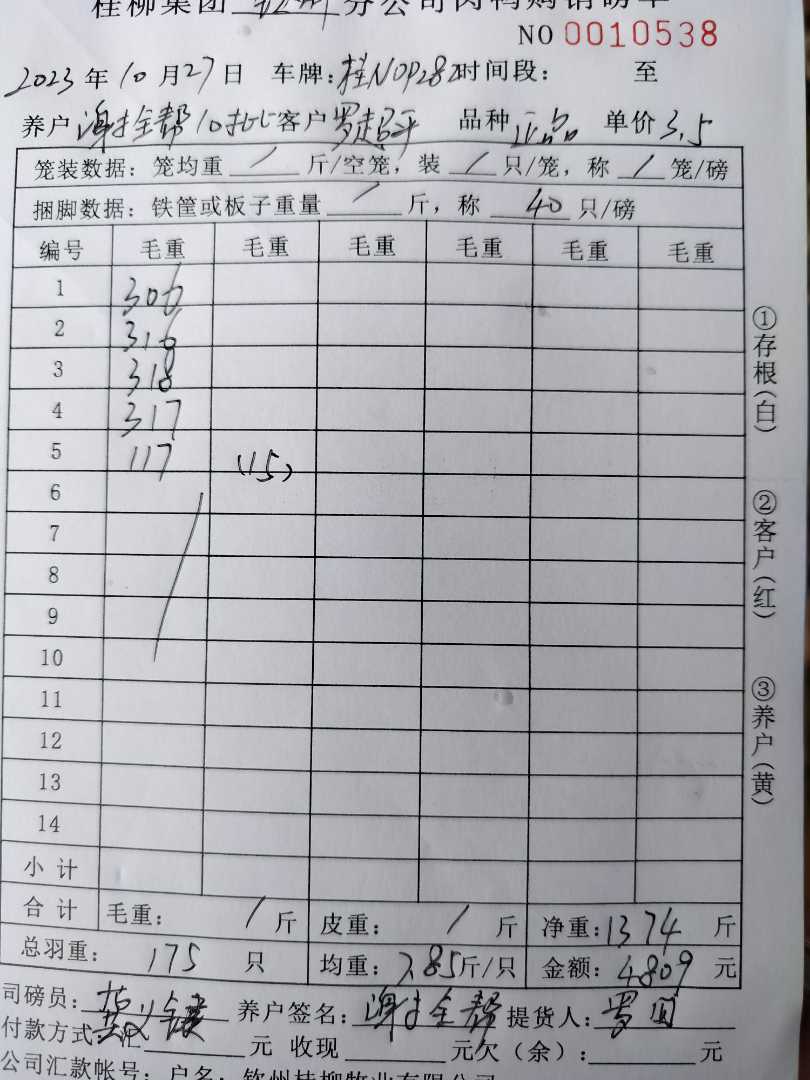 桂柳集团 钦州 分公司肉鸭购销磅单
NO 0010538
2023 年 10 月 27 日 车牌: 桂N0P282 时间段: 至
养户 谢全帮 10批 客户 罗超平 品种 正品 单价 3.5
笼装数据: 笼均重 / 斤/空笼, 装 / 只/笼, 称 / 笼/磅
捆脚数据: 铁筐或板子重量 / 斤, 称 40 只/磅
编号 毛重 毛重 毛重 毛重 毛重 毛重
1 306
2 316
3 318
4 317
5 117 (15)
6
7
8
9
10
11
12
13
14
小计
合计 毛重: / 斤 皮重: / 斤 净重: 1374 斤
总羽重: 175 只 均重: 7.85 斤/只 金额: 4809 元
司磅员: 养户签名: 谢全帮 提货人:
付款方式: 汇 元 收现 元欠(余): 元
公司汇款帐号: 户名: 钦州桂柳牧业有限公司
①存根(白)
②客户(红)
③养户(黄)